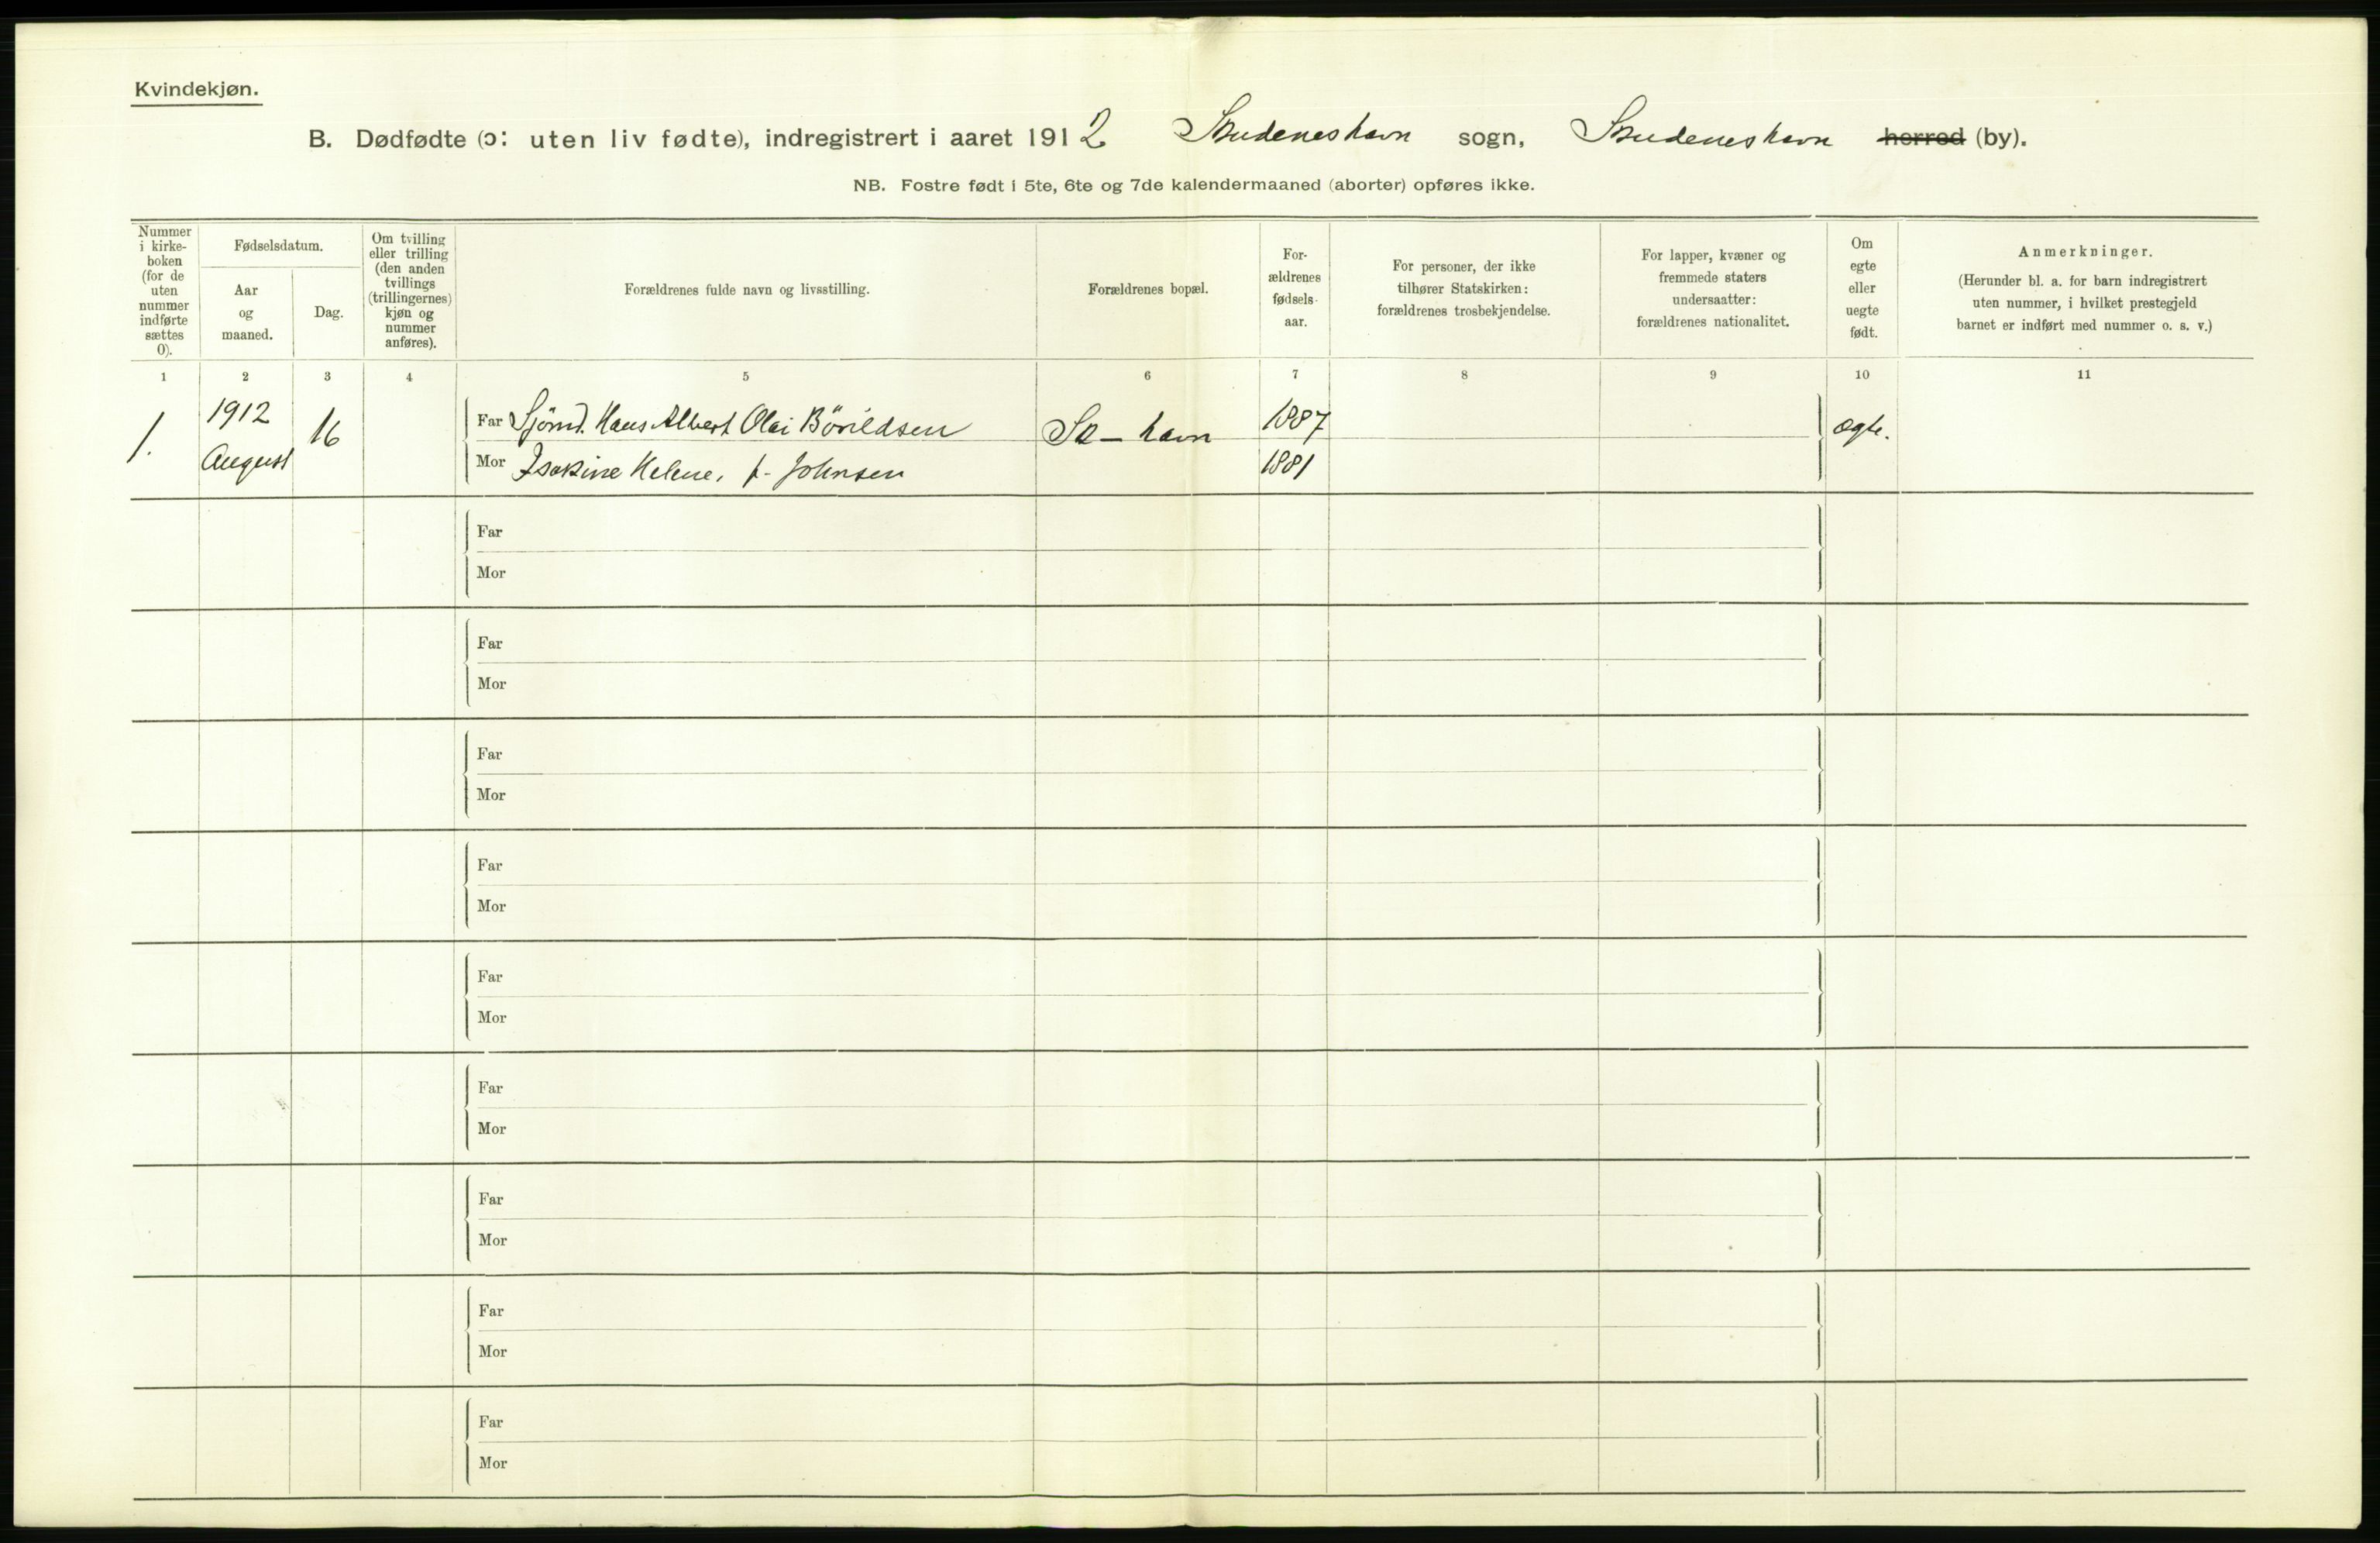 Kvindekjøn.
B. Dødfødte (ɔ: uten liv fødte), indregistrert i aaret 1912 Skudeneshavn sogn, Skudeneshavn herred (by).
NB. Fostre født i 5te, 6te og 7de kalendermaaned (aborter) opføres ikke.
Nummer
i kirke-
boken
(for de
uten
nummer
indførte
sættes
0).
Fødselsdatum.
Aar
og
maaned.
Dag.
Om tvilling
eller trilling
(den anden
tvillings
(trillingernes)
kjøn og
nummer
anføres).
Forældrenes fulde navn og livsstilling.
Forældrenes bopæl.
For-
ældrenes
fødsels-
aar.
For personer, der ikke
tilhører Statskirken:
forældrenes trosbekjendelse.
For lapper, kvæner og
fremmede staters
undersaatter:
forældrenes nationalitet.
Om
egte
eller
uegte
født.
Anmerkninger.
(Herunder bl. a. for barn indregistrert
uten nummer, i hvilket prestegjeld
barnet er indført med nummer o. s. v.)
1 2 3 4 5 6 7 8 9 10 11
1. 1912 16 Far Sjömd. Hans Albert Olai Börildsen Sk-havn 1887 ægte.
August Mor Isakine Helene, f. Johnsen 1881
Far
Mor
Far
Mor
Far
Mor
Far
Mor
Far
Mor
Far
Mor
Far
Mor
Far
Mor
Far
Mor